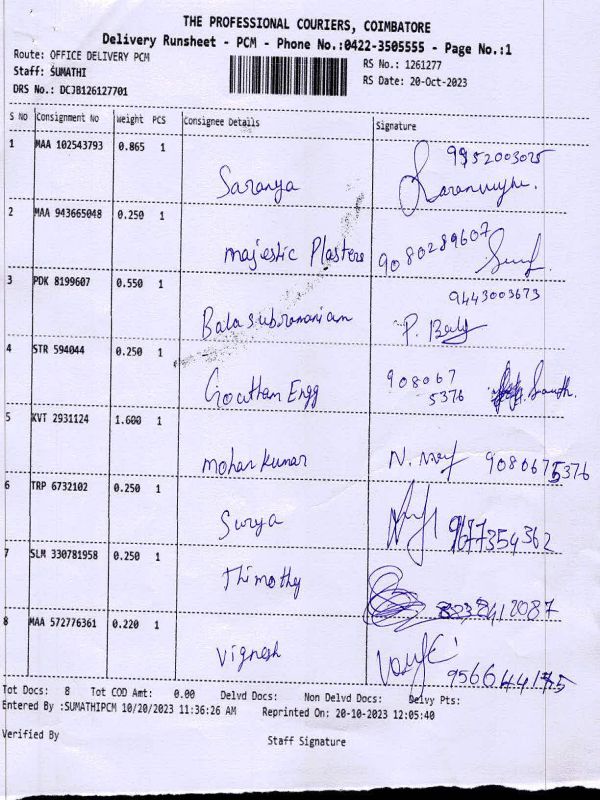 THE PROFESSIONAL COURIERS, COIMBATORE
Delivery Runsheet - PCM - Phone No.:0422-3505555 - Page No.:1
Route: OFFICE DELIVERY PCM
Staff: SUMATHI
DRS No.: DCJB126127701
RS No.: 1261277
RS Date: 20-Oct-2023
S No Consignment No Weight PCS Consignee Details Signature
1 MAA 102543793 0.865 1
Saranya 9952003025
2 MAA 943665048 0.250 1
majestic Plasters 9080289607
3 PDK 8199607 0.550 1
9443003673
Balasubramaniam P. Baly
4 STR 594044 0.250 1
Goutham Engg 908067
5376
5 KVT 2931124 1.600 1
mohan kumar 9080675376
6 TRP 6732102 0.250 1
Surya 9677354362
7 SLM 330781958 0.250 1
Thimothy
8 MAA 572776361 0.220 1
Vignesh
Tot Docs: 8 Tot COD Amt: 0.00 Delvd Docs: Non Delvd Docs: Delvy Pts:
Entered By :SUMATHIPCM 10/20/2023 11:36:26 AM Reprinted On: 20-10-2023 12:05:40
Verified By Staff Signature